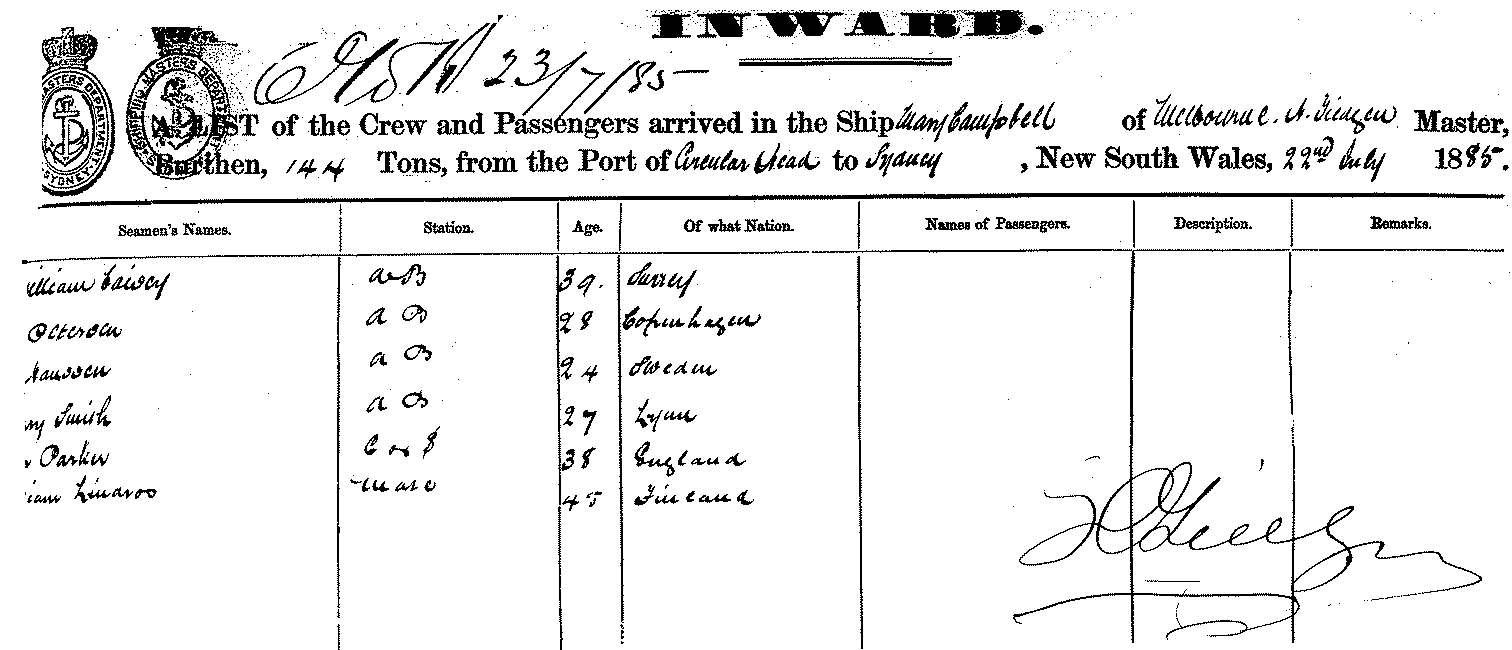 INWARD.
23/7/85
A LIST of the Crew and Passengers arrived in the Ship Mary Campbell of Melbourne. Master,
Burthen, 144 Tons, from the Port of Circular Head to Sydney, New South Wales, 22nd July 1885.
Seamen's Names. Station. Age. Of what Nation. Names of Passengers. Description. Remarks.
illiam AB 39. Surrey
Petersen AB 28 Copenhagen
Hanssen AB 24 Sweden
ry Smith AB 27 Lynn
Parker C & S 38 England
iam Lindros Mate 45 Finland